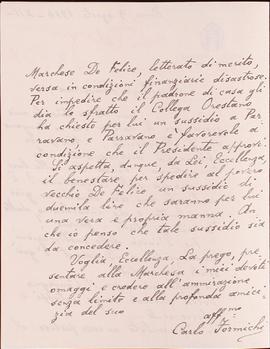 Marchese De Felice, letterato di merito,
versa in condizioni finanziarie disastrose.
Per impedire che il padrone di casa gli
dia lo sfratto il Collega Orestano
ha chiesto per lui un sussidio a Par-
ravano e Parravano è favorevole a
condizione che il Presidente approvi.
Si aspetta, dunque, da Lei, Eccellenza,
il benestare per spedire al povero
vecchio De Felice un sussidio di
duemila lire che saranno per lui
una vera e propria manna. An
che io penso che tale sussidio sia
da concedere.
Voglia, Eccellenza, La prego, pre-
sentare alla Marchesa i miei devoti
omaggi e credere all'ammirazione
senza limiti e alla profonda amici-
zia del suo
aff.mo
Carlo Formichi